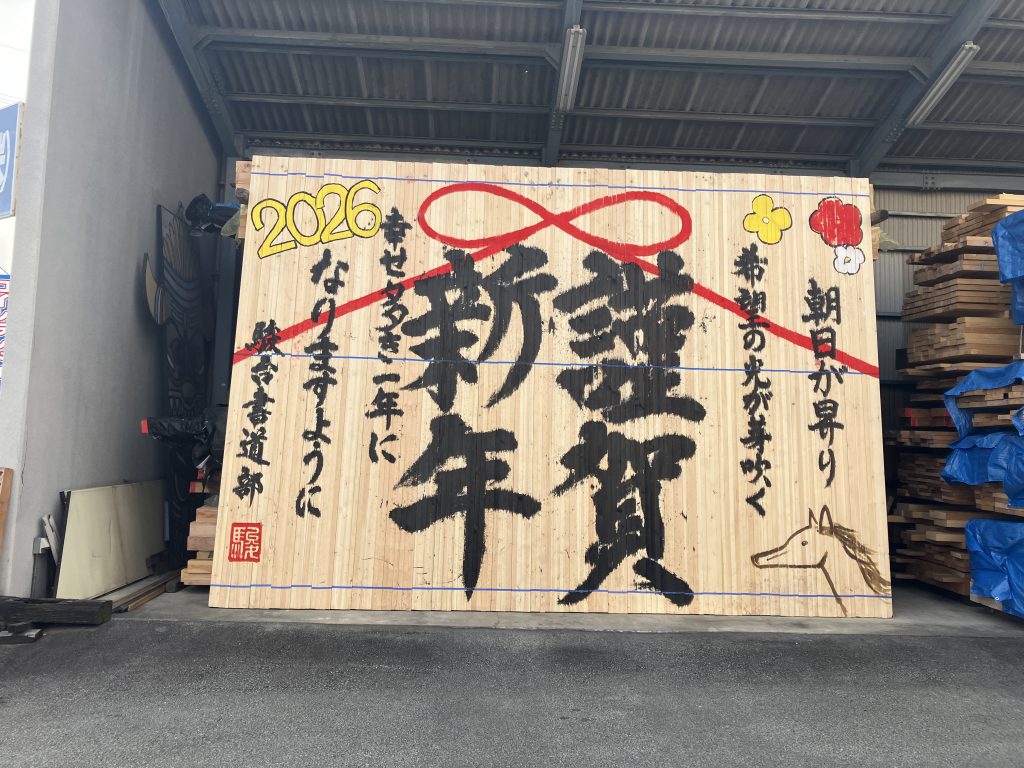 朝日が昇り
希望の光が芽吹く
謹賀
新年
2026
幸せ多き一年に
なりますように
駿台書道部
駿